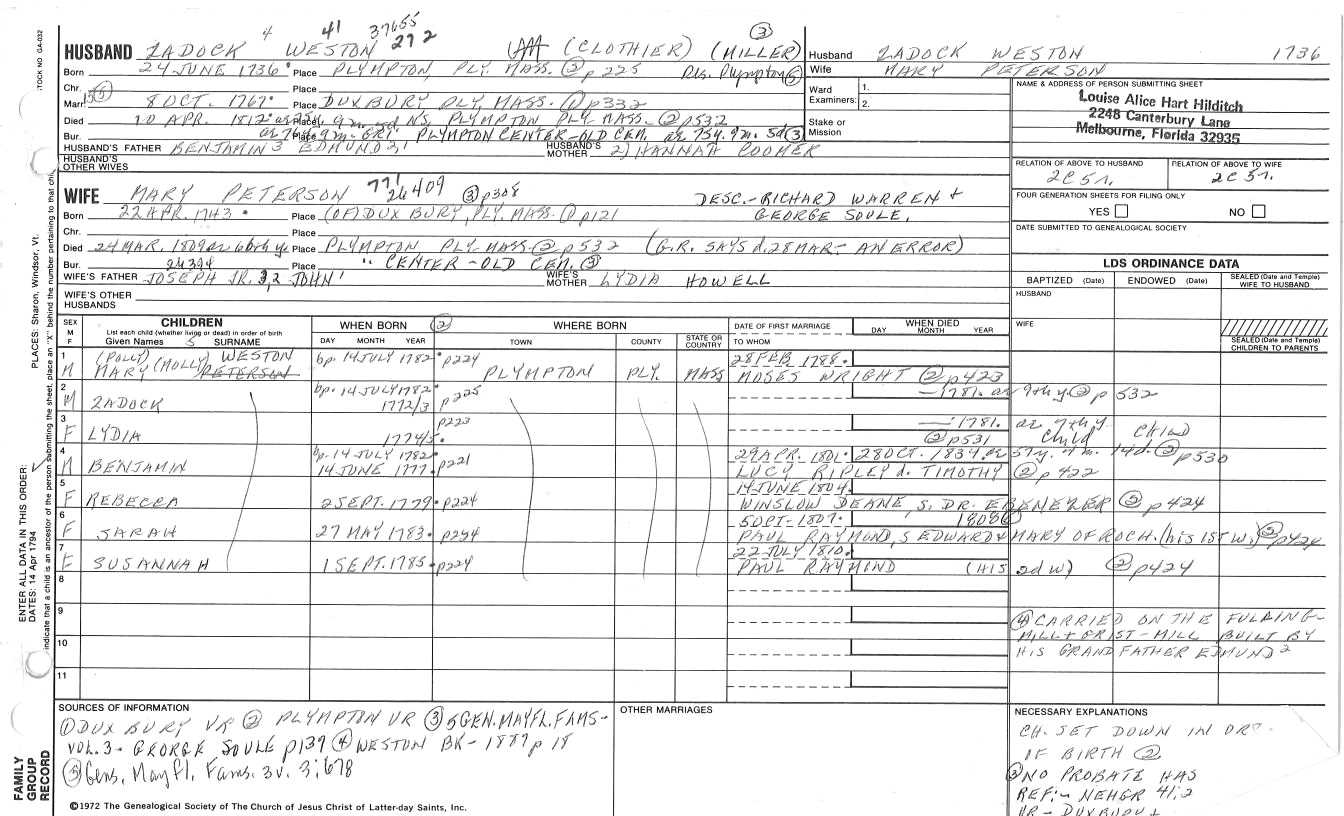 4 41 37655
HUSBAND ZADOCK WESTON 272 (CLOTHIER) (MILLER) ③
Born 24 JUNE 1736 Place PLYMPTON, PLY. MASS. ② p225 Plympton ⑤
Chr. Place
Marr. 8 OCT. 1767 Place DUXBURY PLY. MASS. ① p332
Died 10 APR. 1812 Place PLYMPTON PLY. MASS. ② p532
Bur. Place PLYMPTON CENTER-OLD CEM. ae 75y. 9m. 5d ③
HUSBAND'S FATHER BENJAMIN 3 EDMUND 2 HUSBAND'S MOTHER 2) HANNAH COOMER
HUSBAND'S OTHER WIVES
WIFE MARY PETERSON 771 26409 ③ p308 DESC.-RICHARD WARREN +
GEORGE SOULE,
Born 22 APR. 1743 Place (OF) DUXBURY, PLY. MASS. ① p121
Chr. Place
Died 24 MAR. 1809 Place PLYMPTON PLY. MASS. ② p532 (G.R. SAYS d. 28 MAR- AN ERROR)
Bur. 26394 Place " CENTER-OLD CEM. ③
WIFE'S FATHER JOSEPH JR. 3,2 JOHN 1 WIFE'S MOTHER LYDIA HOWELL
WIFE'S OTHER HUSBANDS
Husband ZADOCK WESTON 1736
Wife MARY PETERSON
Ward Examiners: 1.
2.
Stake or Mission
NAME & ADDRESS OF PERSON SUBMITTING SHEET
Louise Alice Hart Hilditch
2248 Canterbury Lane
Melbourne, Florida 32935
RELATION OF ABOVE TO HUSBAND RELATION OF ABOVE TO WIFE
2C 5r. 2C 5r.
FOUR GENERATION SHEETS FOR FILING ONLY
YES NO
DATE SUBMITTED TO GENEALOGICAL SOCIETY
LDS ORDINANCE DATA
BAPTIZED (Date) ENDOWED (Date) SEALED (Date and Temple) WIFE TO HUSBAND
HUSBAND
WIFE
SEALED (Date and Temple) CHILDREN TO PARENTS
SEX M F CHILDREN WHEN BORN ② WHERE BORN DATE OF FIRST MARRIAGE WHEN DIED
List each child (whether living or dead) in order of birth
Given Names SURNAME DAY MONTH YEAR TOWN COUNTY STATE OR COUNTRY TO WHOM DAY MONTH YEAR
1 (POLLY) (MOLLY) WESTON bp 14 JULY 1782 p224 28 FEB 1788.
MARY PETERSON PLYMPTON PLY. MASS MOSES WRIGHT ② p423
2 bp. 14 JULY 1782 p225 1781. ae 9th y. ② p532
M ZADOCK 1772/3
3 p223 1781. ae 7th y
F LYDIA 1774/5. ② p531 child CHILD
4 bp. 14 JULY 1782 29 APR. 1801. 28 OCT. 1834. ae 57y. 4m. 14d. ② p530
M BENJAMIN 14 JUNE 1777 p221 LUCY RIPLEY d. TIMOTHY ② p422
5 14 JUNE 1804.
F REBECCA 2 SEPT. 1779 p224 WINSLOW DEANE, S. DR. EBENEZER ② p424
6 5 OCT-1807. 1808
F SARAH 27 MAY 1783. p224 PAUL RAYMOND, S EDWARD + MARY OF ROCH. (his 1ST W.) ② p424
7 22 JULY 1810.
F SUSANNAH 1 SEPT. 1785 p224 PAUL RAYMOND (HIS 2d W) ② p424
8
9
10
11
④ CARRIED ON THE FULLING-
MILL + GRIST-MILL BUILT BY
HIS GRANDFATHER EDMUND 2
SOURCES OF INFORMATION
① DUXBURY VR ② PLYMPTON VR ③ 5 GEN. MAYFL. FAMS-
VOL. 3- GEORGE SOULE p139 ④ WESTON BK-1887 p 18
⑤ Gens, Mayfl, Fams. 3v. 3:678
©1972 The Genealogical Society of The Church of Jesus Christ of Latter-day Saints, Inc.
OTHER MARRIAGES
NECESSARY EXPLANATIONS
CH. SET DOWN IN
OF BIRTH ②
③ NO PROBATE HAS
REF:- NEHGR 41:2
VR- DUXBURY +
STOCK NO. GA-032
PLACES: Sharon, Windsor, Vt.
ENTER ALL DATA IN THIS ORDER:
DATES: 14 Apr 1794
indicate that a child is an ancestor of the person submitting the sheet, place an "X" behind the number pertaining to that
FAMILY GROUP RECORD